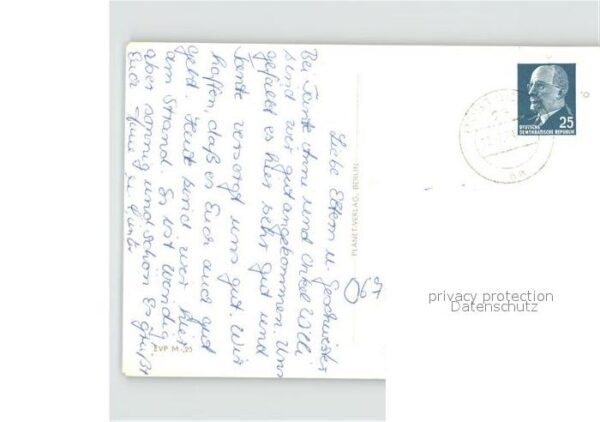 Liebe Eltern u. Geschwister
Bei Tante Anne und Onkel Willi
sind wir gut angekommen. Uns
gefällt es hier sehr gut und
Tante versorgt uns gut. Wir
hoffen, daß es Euch auch gut
geht. Heut sind wir hier
am Strand. Es ist windig
aber sonnig und schön Es grüßt
Euch u. Günter
PLANET-VERLAG, BERLIN
EVP M -,20
069
25
DEUTSCHE
DEMOKRATISCHE REPUBLIK
privacy protection
Datenschutz